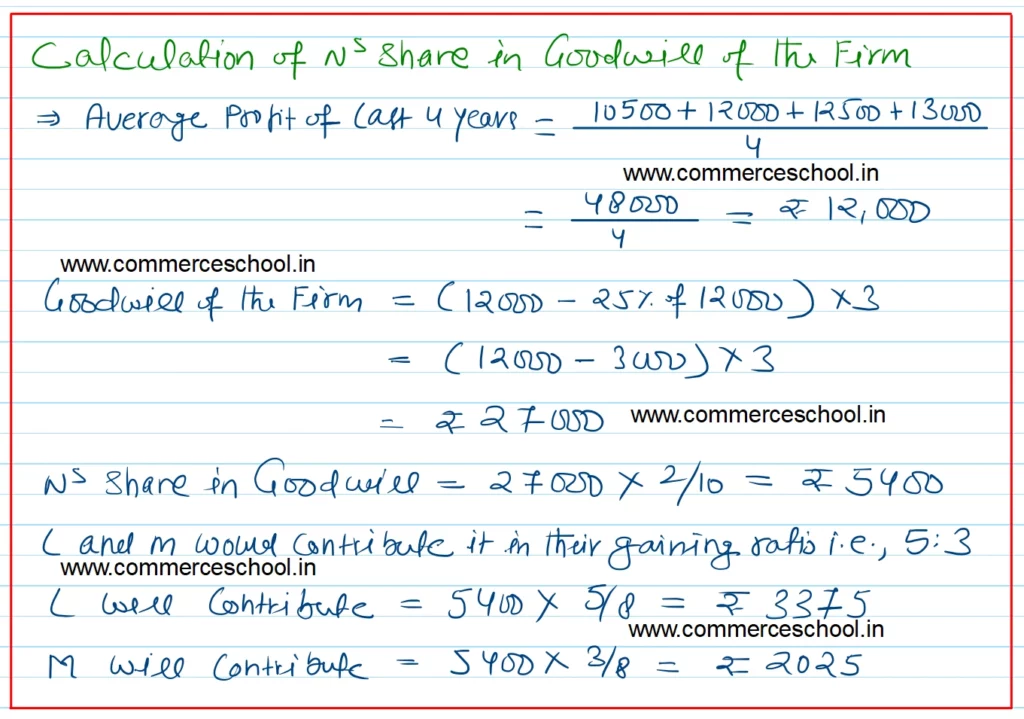 Calculation of Ns Share in Goodwill of the Firm
⇒ Average Profit of Last 4 years = 10500 + 12000 + 12500 + 13000
4
www.commerceschool.in
= 48000 = ₹ 12,000
4
www.commerceschool.in
Goodwill of the Firm = (12000 - 25% of 12000) × 3
= (12000 - 3000) × 3
= ₹ 27000 www.commerceschool.in
Ns Share in Goodwill = 27000 × 2/10 = ₹ 5400
L and M would contribute it in their gaining ratio i.e., 5:3
www.commerceschool.in
L will Contribute = 5400 × 5/8 = ₹ 3375
www.commerceschool.in
M will Contribute = 5400 × 3/8 = ₹ 2025